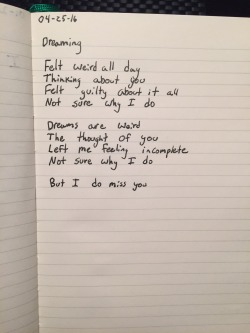 04-25-16
Dreaming
Felt weird all day
Thinking about you
Felt guilty about it all
Not sure why I do
Dreams are weird
The thought of you
Left me feeling incomplete
Not sure why I do
But I do miss you